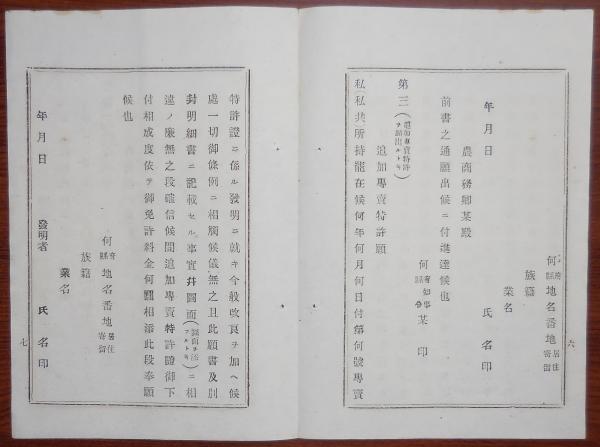 何府縣地名番地居住寄留
族籍
業名
氏名印
年月日
農商務卿某殿
前書之通願出候ニ付進達候也
何府縣知事令某印
第三(追加專賣特許ヲ願出ルトキ)
追加專賣特許願
私(私共)所持罷在候何年何月何日付第何號專賣
六
特許證ニ係ル發明ニ就キ今般改良ヲ加ヘ候
處一切御條例ニ相觸候儀無之且此願書及別
封明細書ニ記載セル事實幷圖面(圖面ヲ添フルトキ)ニ相
違ノ廉無之段確信候間追加專賣特許證御下
付相成度依テ御免許料金何圓相添此段奉願
候也
何府縣地名番地居住寄留
族籍
業名
年月日 發明者 氏名印
七